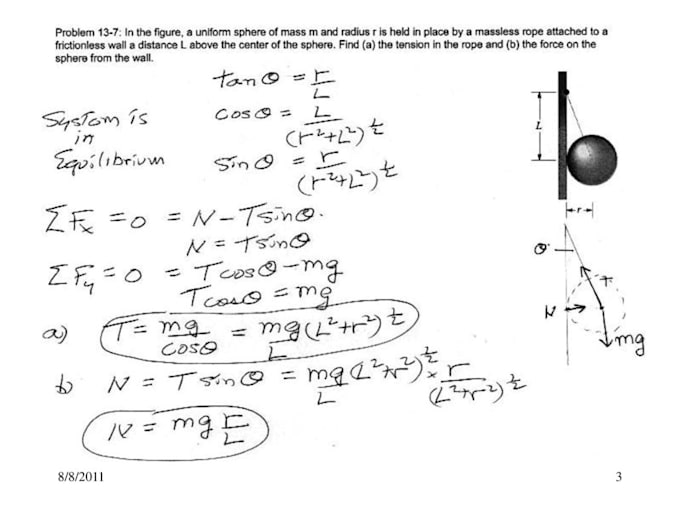 Problem 13-7: In the figure, a uniform sphere of mass m and radius r is held in place by a massless rope attached to a
frictionless wall a distance L above the center of the sphere. Find (a) the tension in the rope and (b) the force on the
sphere from the wall.
tan θ = r/L
System is
in
Equilibrium
cos θ = L/(r²+L²)^½
sin θ = r/(r²+L²)^½
L
r
ΣFx = 0 = N - T sin θ.
N = T sin θ
ΣFy = 0 = T cos θ - mg
T cos θ = mg
θ
T
N
mg
a) T = mg/cos θ = mg(L²+r²)^½/L
b N = T sin θ = mg(L²+r²)^½/L × r/(L²+r²)^½
N = mg r/L
8/8/2011
3